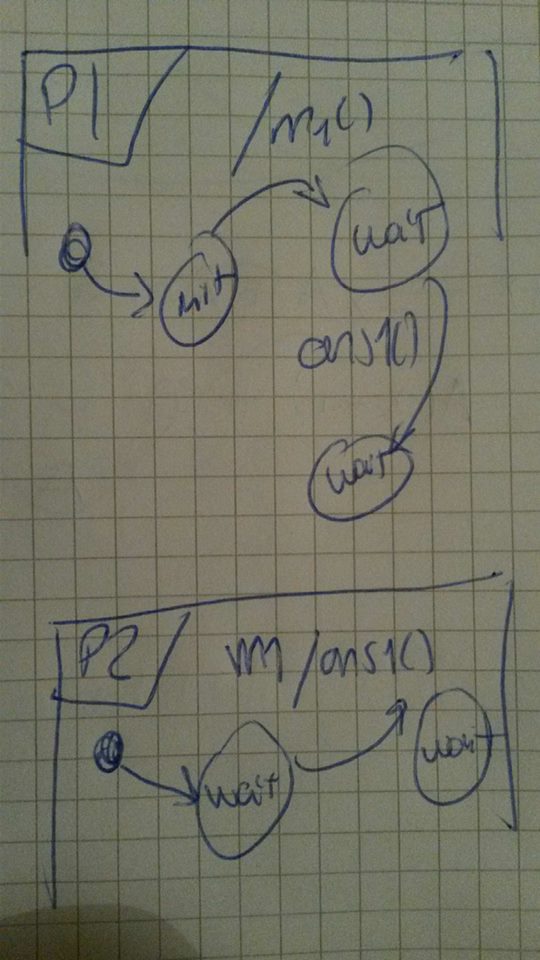 P1
/m1()
wait
init
ans1()
wait
P2
m/ans1()
wait
wait